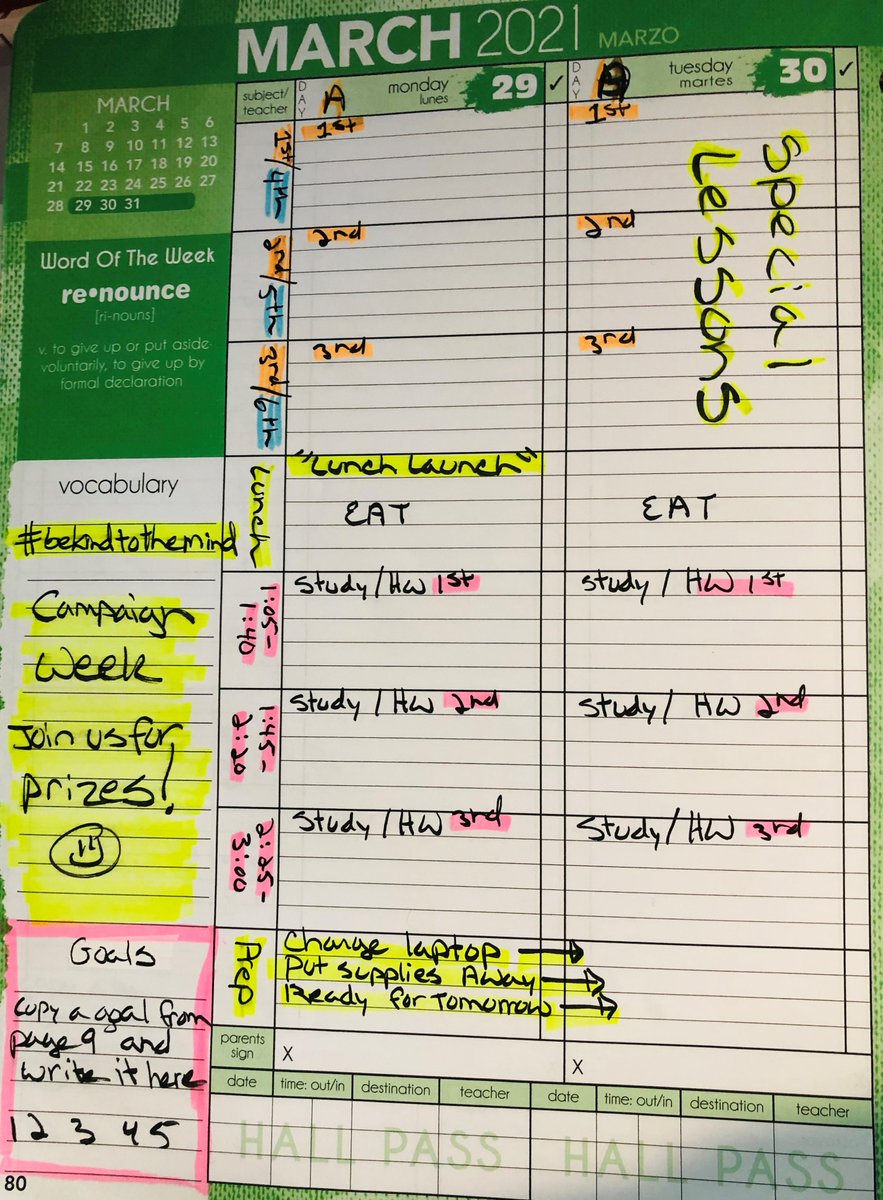 MARCH 2021 MARZO
MARCH
1 2 3 4 5 6
7 8 9 10 11 12 13
14 15 16 17 18 19 20
21 22 23 24 25 26 27
28 29 30 31
Word Of The Week
re•nounce
[ri-nouns]
v. to give up or put aside
voluntarily, to give up by
formal declaration
vocabulary
#bekindtothemind
Campaign
Week
Join us for
prizes!
Goals
copy a goal from
page 9 and
write it here
1 2 3 4 5
80
subject/
teacher
DAY
A
monday
lunes
29 ✓
DAY
B
tuesday
martes
30 ✓
1st/4th
1st
1st
Special
Lessons
2nd/5th
2nd
2nd
3rd/6th
3rd
3rd
Lunch
"Lunch Launch"
EAT
EAT
1:05-
1:40
Study/HW 1st
Study/HW 1st
1:45-
2:20
Study/HW 2nd
Study/HW 2nd
2:25-
3:00
Study/HW 3rd
Study/HW 3rd
Prep
Charge laptop →
Put supplies Away →
Ready for Tomorrow →
parents
sign
X
X
date time: out/in destination teacher date time: out/in destination teacher
HALL PASS HALL PASS